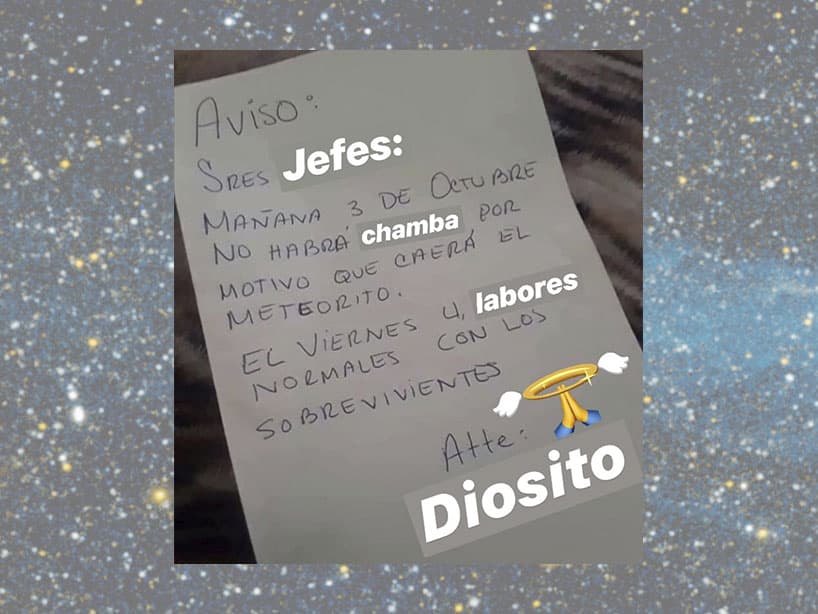 Aviso:
SRES Jefes:
MAÑANA 3 DE OCTUBRE
NO HABRÁ chamba POR
MOTIVO QUE CAERÁ EL
METEORITO.
EL VIERNES 4, labores
NORMALES CON LOS
SOBREVIVIENTES
Atte:
Diosito